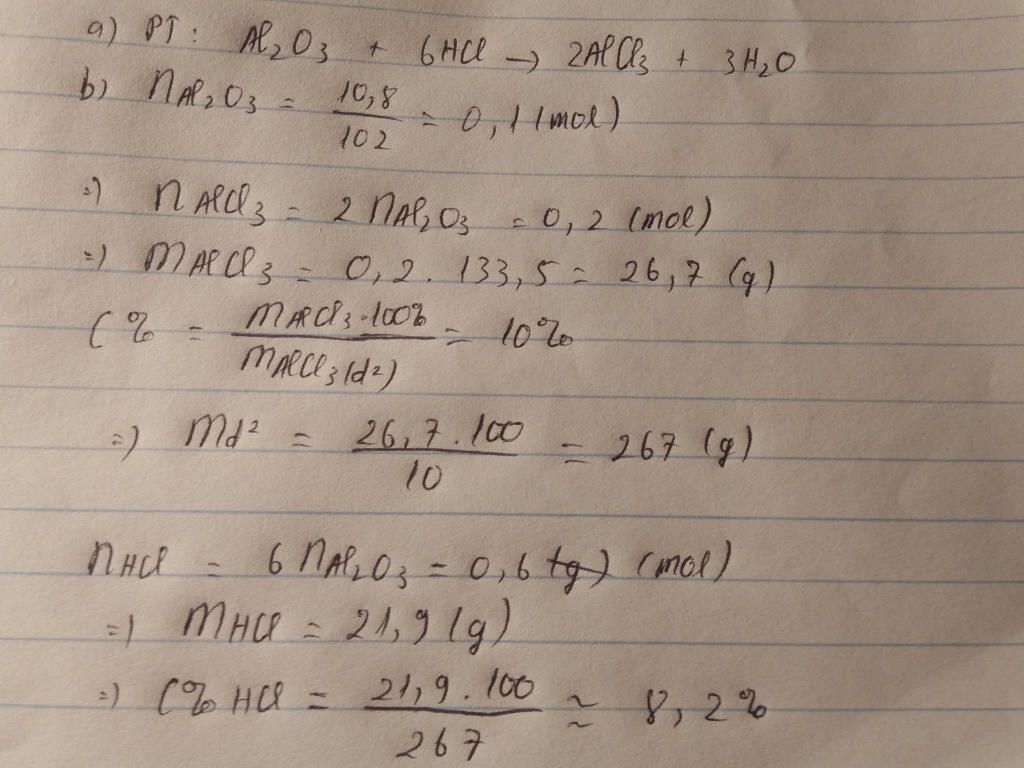 a) PT: Al₂O₃ + 6HCl → 2AlCl₃ + 3H₂O
b) nAl₂O₃ = 10,8/102 = 0,1 (mol)
=) nAlCl₃ = 2 nAl₂O₃ = 0,2 (mol)
=) mAlCl₃ = 0,2 . 133,5 = 26,7 (g)
C% = mAlCl₃.100%/mAlCl₃(d²) = 10%
=) md² = 26,7.100/10 = 267 (g)
nHCl = 6 nAl₂O₃ = 0,6 (mol)
=) mHCl = 21,9 (g)
=) C% HCl = 21,9.100/267 ≈ 8,2%